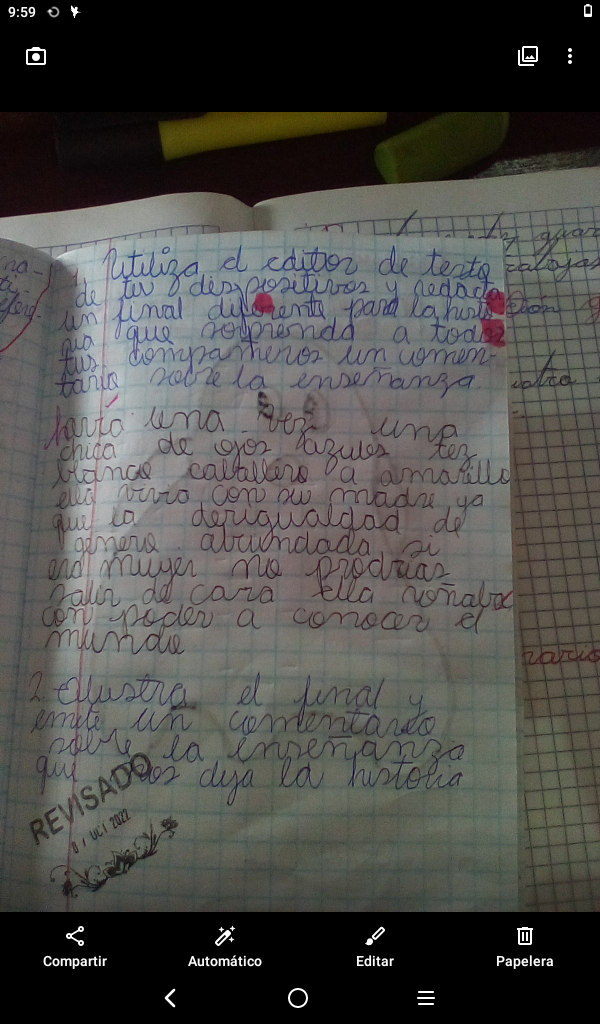 9:59
Utiliza el editor de texto
de tus dispositivos y redacta
un final diferente para la histo
ria que sorprenda a todos
tus compañeros un comen-
tario sobre la enseñanza
había una vez una
chica de ojos azules tez
blanco caballero a amarillo
ella vivia con su madre ya
que la desigualdad de
genero abundada si
era mujer no prodrias
salir de casa Ella soñaba
con poder a conocer el
mundo
2. Ilustra el final y
emite un comentario
sobre la enseñanza
que nos deja la historia
REVISADO
Compartir
Automático
Editar
Papelera